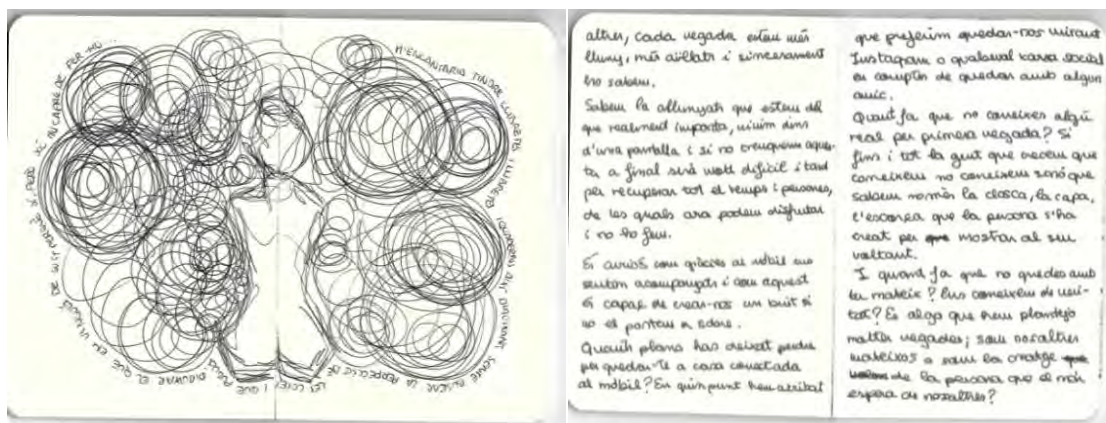 M'ENCANTARIA TINDRE LLIBRETES I LLIBRETES
SENSE BUSCAR LA PERFECCIÓ DE
LES COSES I QUE PUGUI
DIBUIXAR EL QUE EM VINGUÉS DE GUST PERQUÈ SÍ, PERÒ SÓC INCAPAÇ DE FER-HO...
altres, cada vegada estem més
lluny, més aïllats i sincerament
ho sabem.
Sabem la allunyats que estem del
que realment importa, vivim dins
d'una pantalla i si no trenquem aques-
ta a final serà molt difícil i tard
per recuperar tot el temps i persones,
de les quals ara podem disfrutar
i no ho fem.
És curiós com gràcies al mòbil ens
sentim acompanyats i com aquest
és capaç de crear-nos un buit si
no el portem a sobre.
Quants plans has deixat perdre
per quedar-te a casa conectada
al mòbil? En quin punt hem arribat
que preferim quedar-nos mirant
Instagram o qualsevol xarxa social
en comptes de quedar amb algun
amic.
Quant fa que no coneixes algú
real per primera vegada? Si
fins i tot la gent que creiem que
coneixem no coneixem sinó que
sabem només la closca, la capa,
l'escorça que la persona s'ha
creat per mostrar al seu
voltant.
I quand fa que no quedes amb
tu mateix? Ens coneixem de veri-
tat? És algo que m'he plantejat
moltes vegades; som nosaltres
mateixos o som la imatge
de la persona que el món
espera de nosaltres?